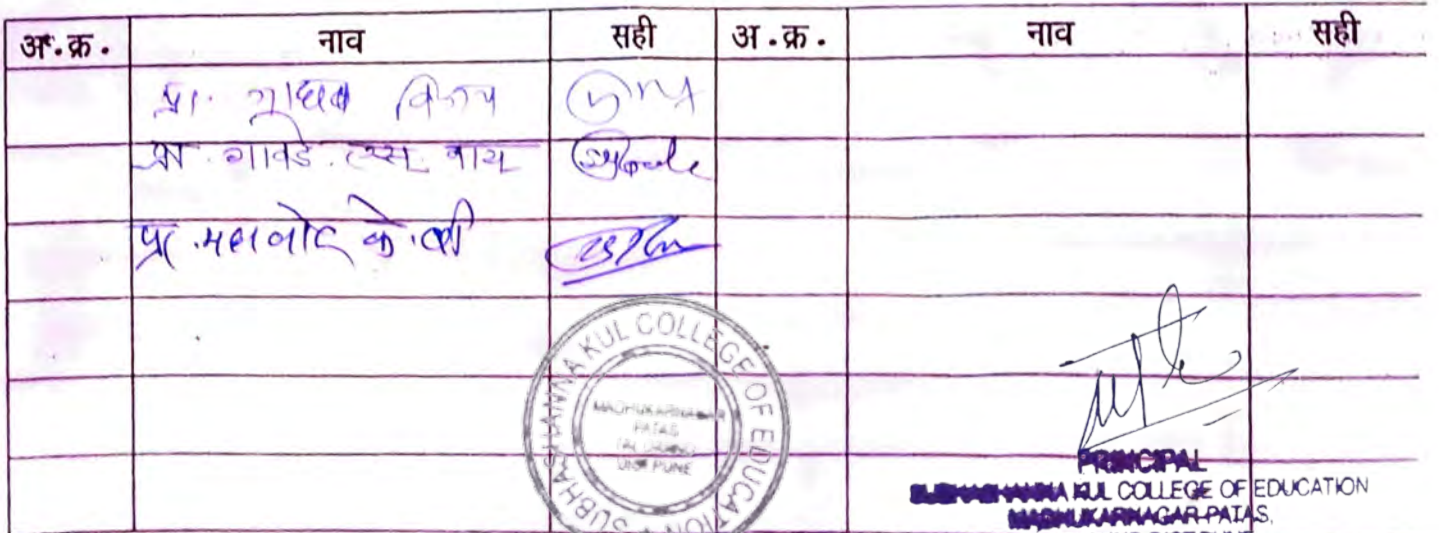 अ.क्र. नाव सही अ.क्र. नाव सही
प्रा. जाधव विजय
प्रा. गावडे. एस. वाय
प्रा. के.
SUBHASHANNA KUL COLLEGE OF EDUCATION
MADHUKARNAGAR
PATAS
TAL DAUND
DIST PUNE
PRINCIPAL
SUBHASHANNA KUL COLLEGE OF EDUCATION
MADHUKARNAGAR PATAS,
DIST PUNE